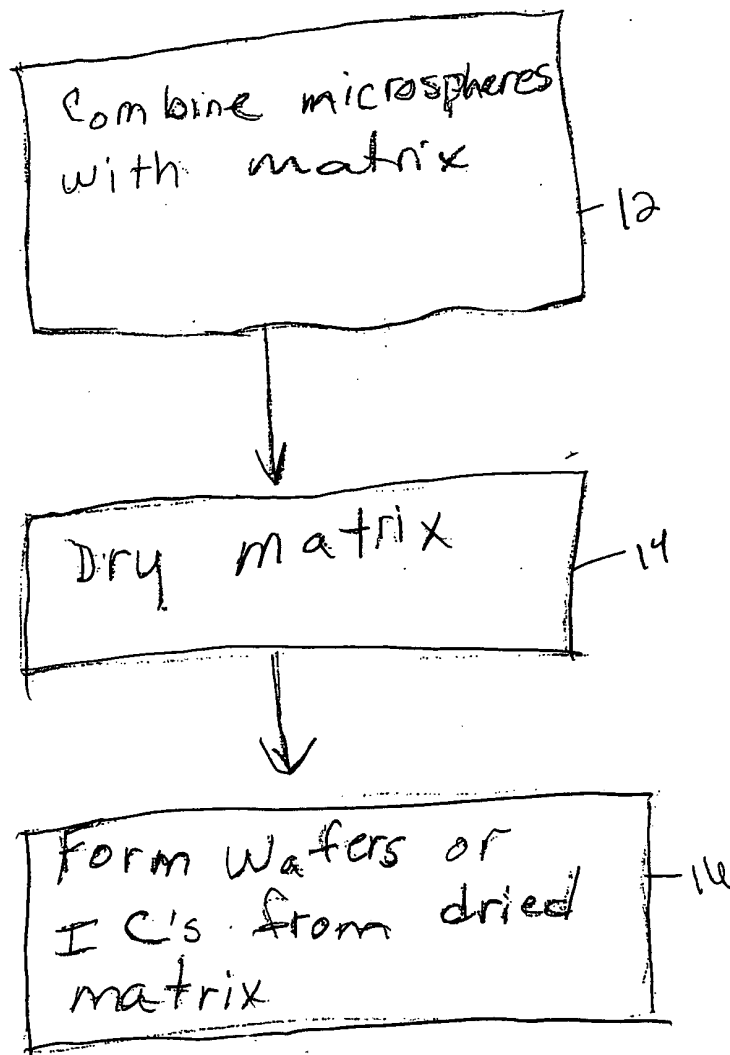 Combine microspheres
with matrix
12
Dry matrix
14
Form Wafers or
IC's from dried
matrix
16